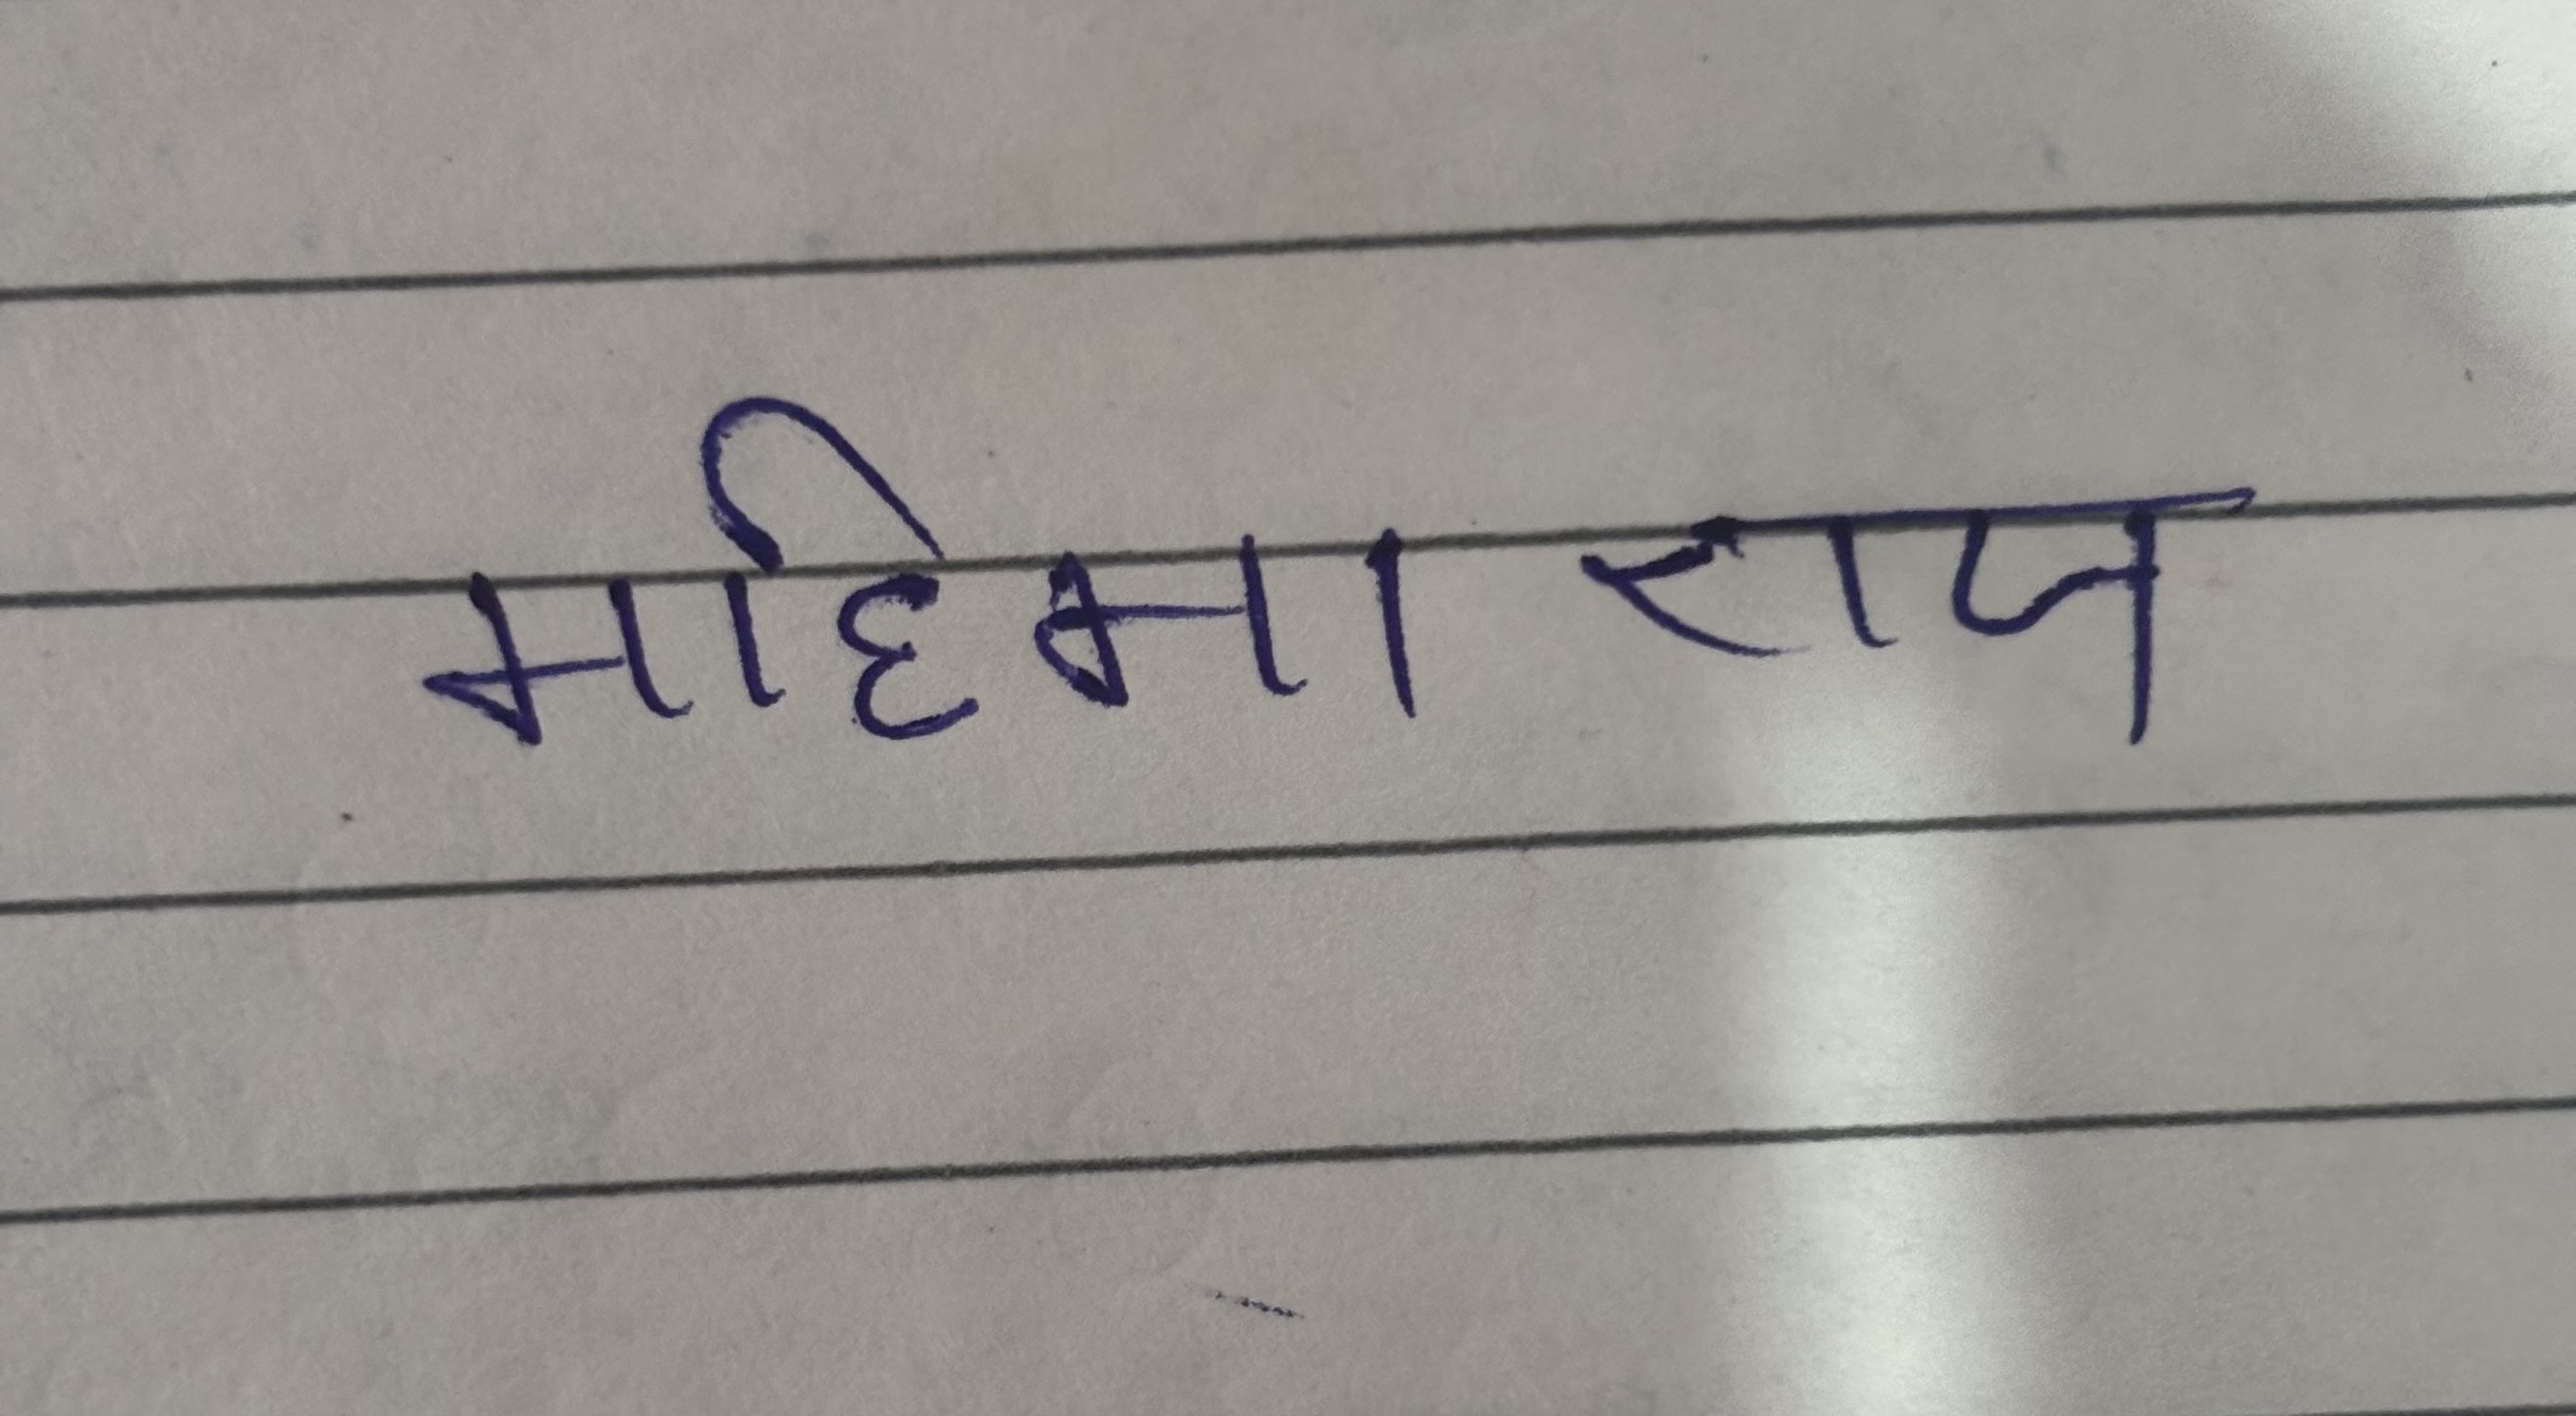 महिमा राज